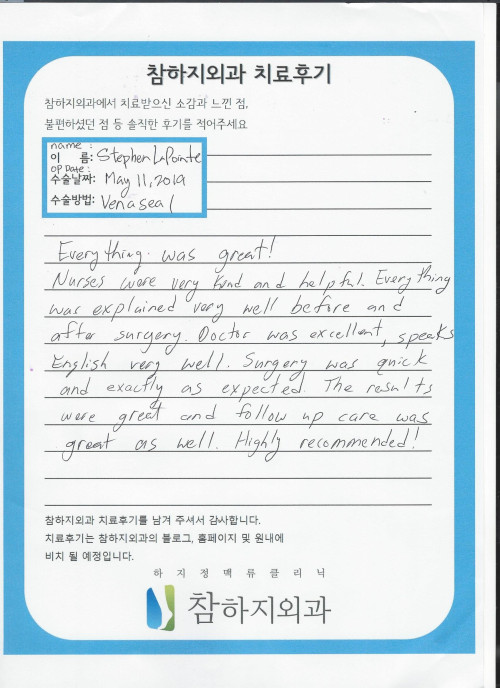 참하지외과 치료후기
참하지외과에서 치료받으신 소감과 느낀 점,
불편하셨던 점 등 솔직한 후기를 적어주세요
name :
이 름: Stephen LaPointe
OP Date :
수술날짜: May 11, 2019
수술방법: Venaseal
Everything was great!
Nurses were very kind and helpful. Everything
was explained very well before and
after surgery. Doctor was excellent, speaks
English very well. Surgery was quick
and exactly as expected. The results
were great and follow up care was
great as well. Highly recommended!
참하지외과 치료후기를 남겨 주셔서 감사합니다.
치료후기는 참하지외과의 블로그, 홈페이지 및 원내에
비치 될 예정입니다.
하지정맥류클리닉
참하지외과